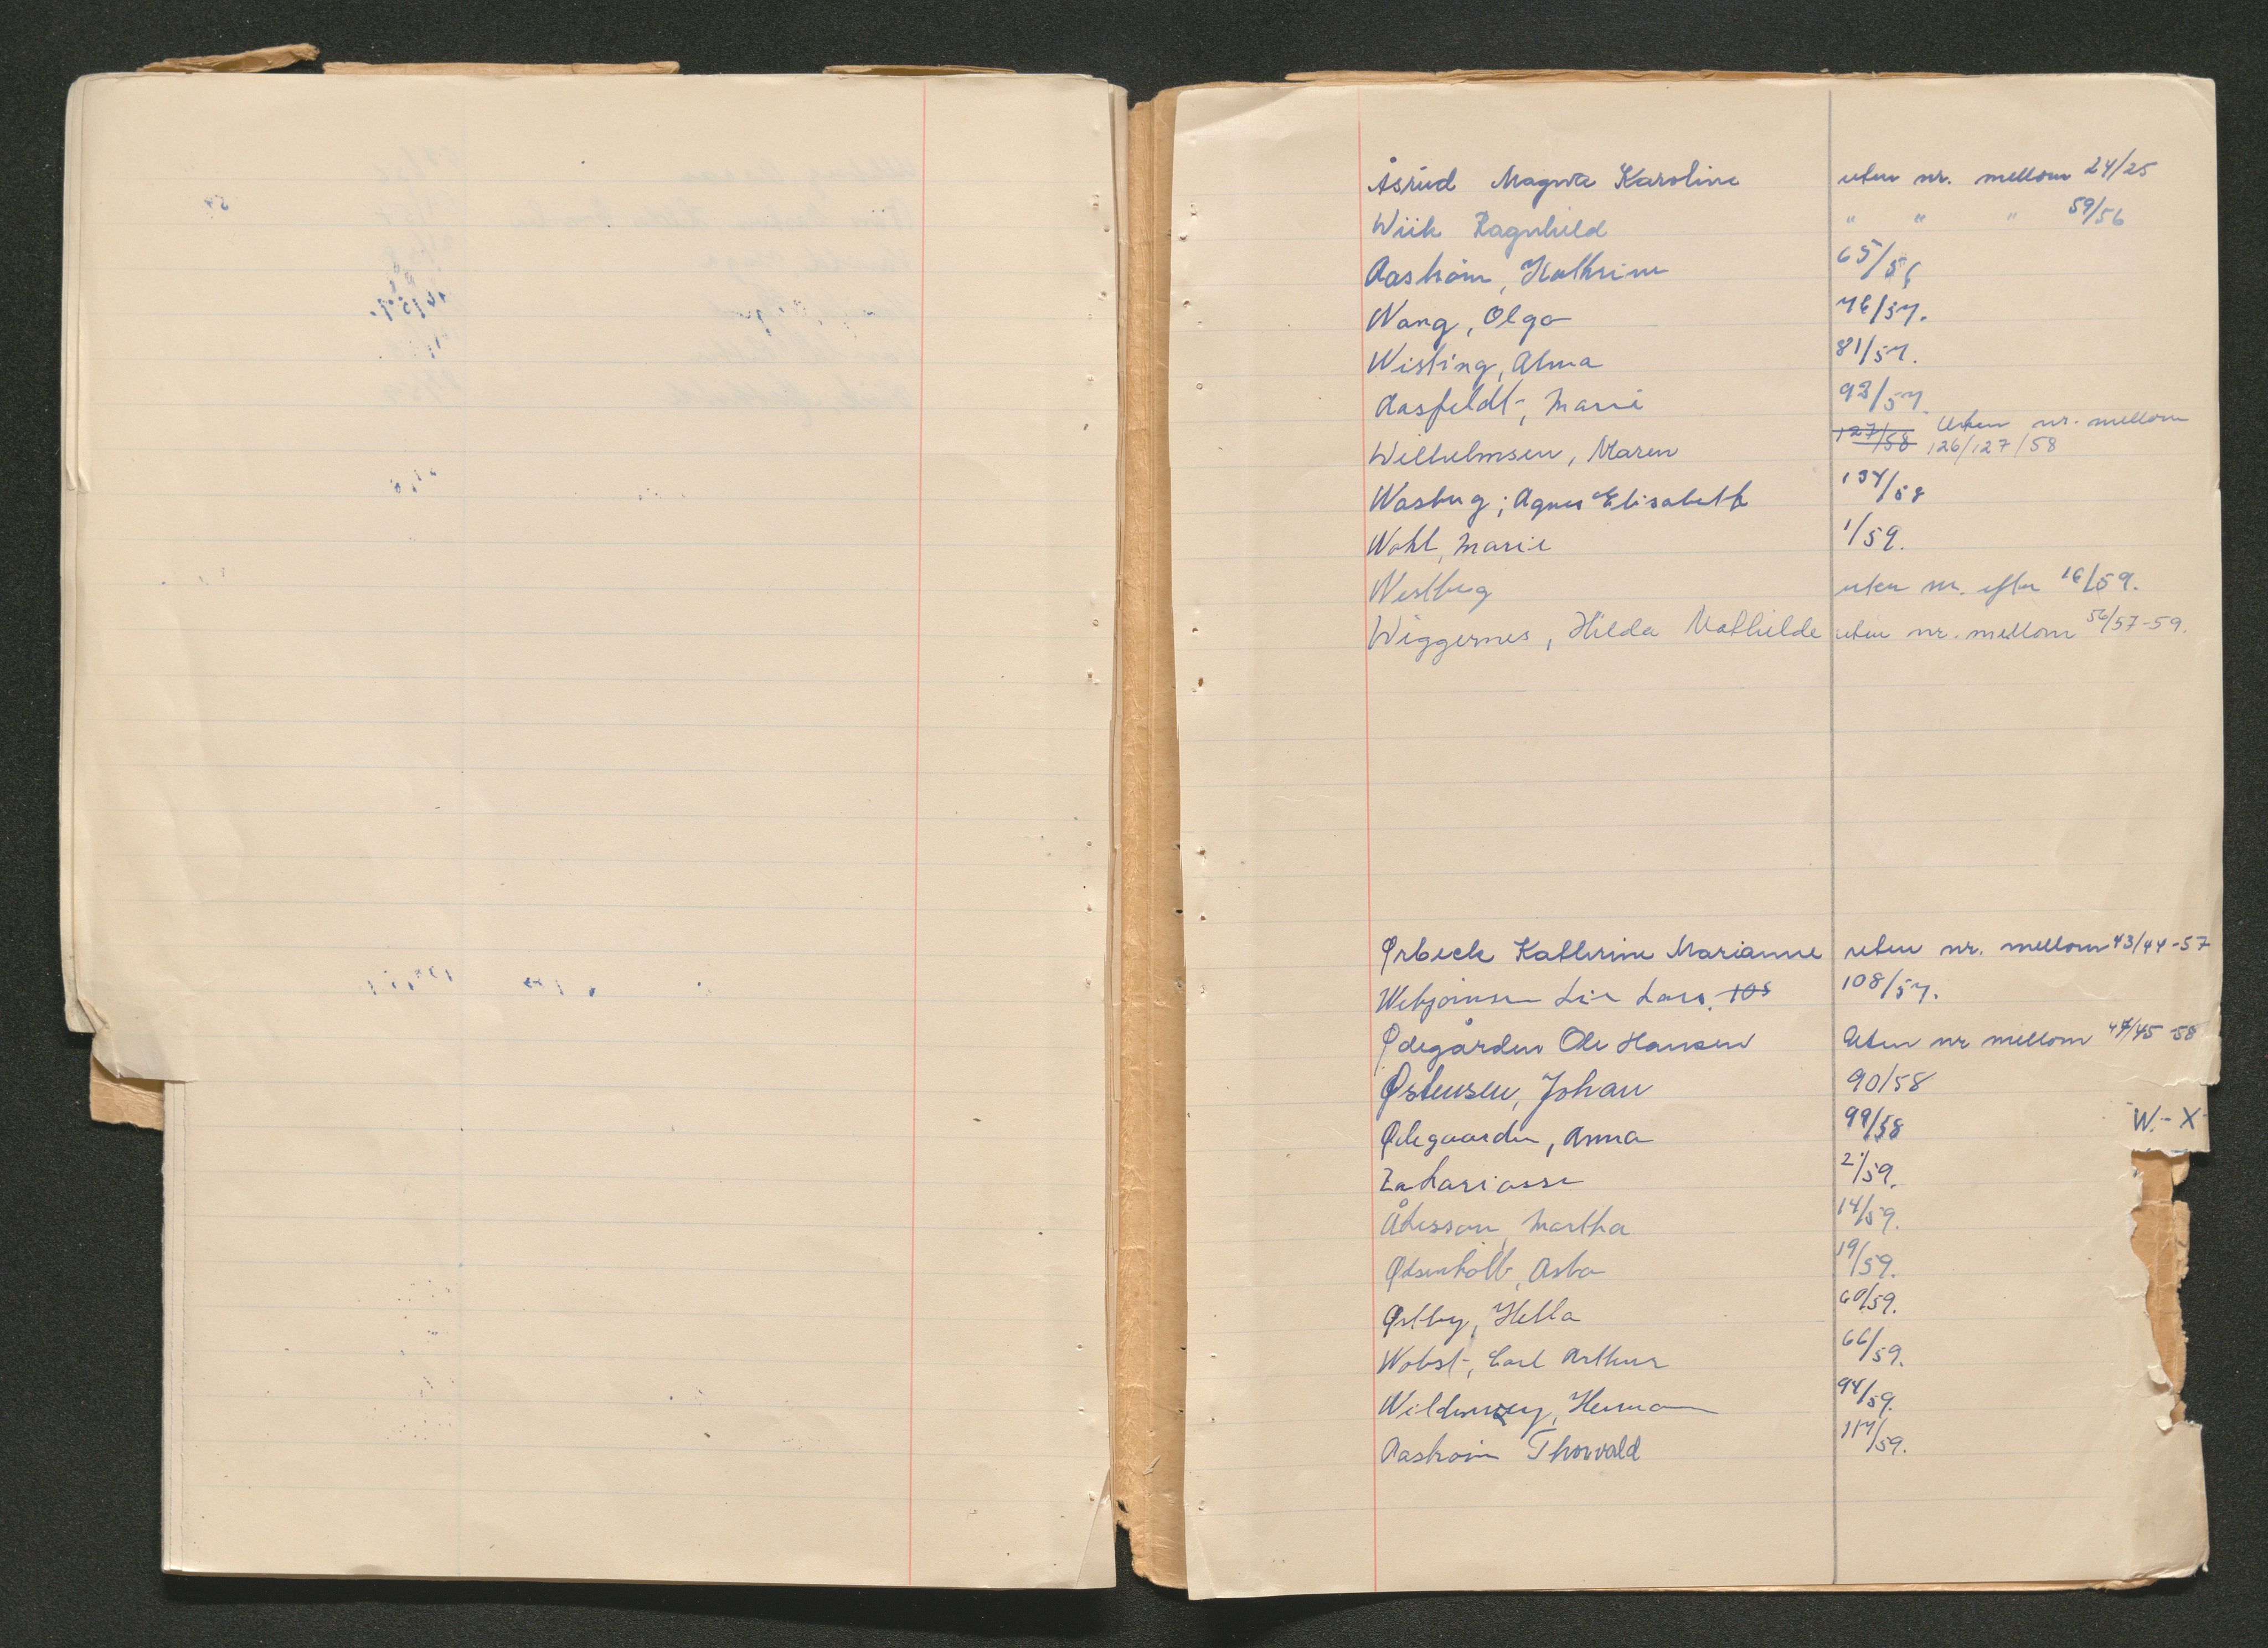 Åsrud Magna Karoline uten nr. mellom 24/25
Wiik Ragnhild " " " 59/56
Aaström, Kathrine 65/56
Wang, Olga 76/57.
Wisting, Alma 81/57.
Aasfeldt, Marie 93/57.
Wilhelmsen, Maren 127/58 Uten nr. mellom
126/127/58
Wasbug; Agnes Elisabeth 134/58
Wahl, Marie 1/59.
Westbug uten nr. efter 16/59.
Wiggernes, Hilda Mathilde uten nr. mellom 56/57-59.
Ørbeck Kathrine Marianne uten nr. mellom 43/44-57
Lars. 108/57.
Ødegården Ole Hansen Uten nr mellom 44/45-58
Østensen, Johan 90/58
Ødegaarden, Anna 99/58
W.-X
Zakariassen 2/59.
Åkesson, Martha 14/59.
Asta 19/59.
Østby, Hella 60/59.
Wobst, Carl Arthur 66/59.
Wildenvey, Herman 94/59.
Aaström Thorvald 117/59.